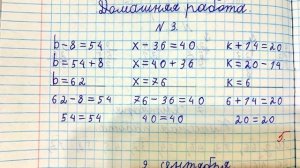 Домашняя работа
N 3.
b-8=54 x-36=40 k+14=20
b=54+8 x=40+36 k=20-14
b=62 x=76 k=6
62-8=54 76-36=40 6+14=20
54=54 40=40 20=20
5.
9 сентября